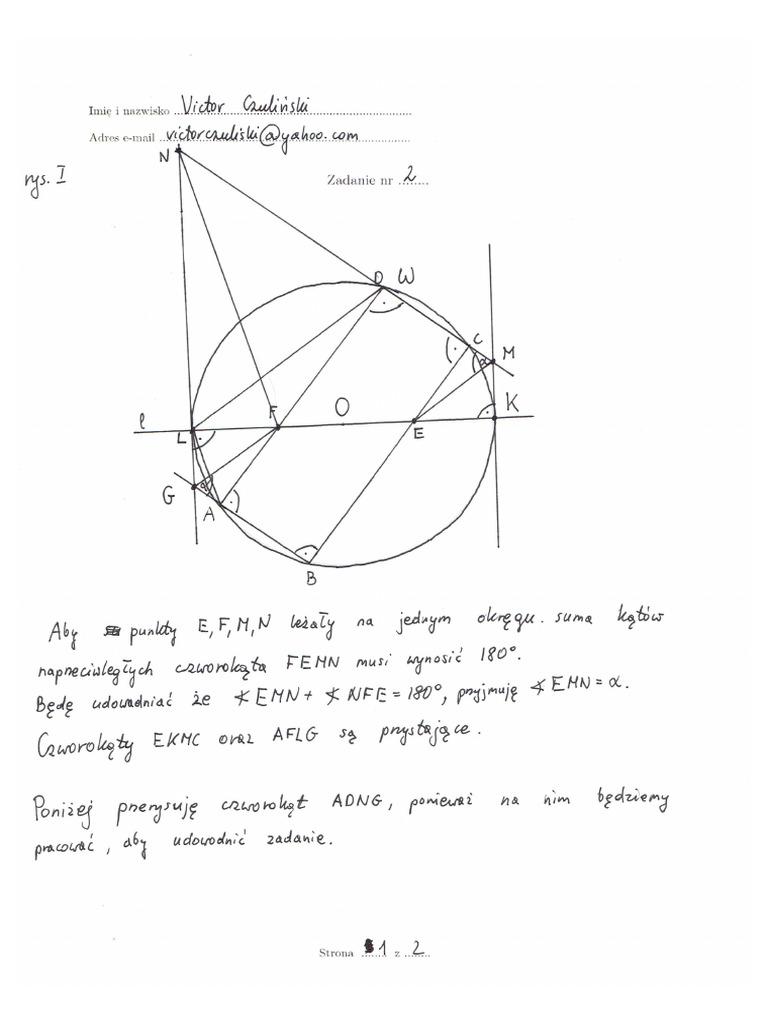 Imię i nazwisko Victor Czuliński
Adres e-mail victorczuliski@yahoo.com
N
rys. I
Zadanie nr 2
D W
C
M
α
l
L
F
O
E
K
G
α
A
B
Aby punkty E, F, M, N leżały na jednym okręgu. suma kątów
naprzeciwległych czworokąta FEMN musi wynosić 180°.
Będę udowadniać że ∢EMN + ∢NFE = 180°, przyjmuję ∢EMN = α.
Czworokąty EKMC oraz AFLG są przystające.
Poniżej przerysuję czworokąt ADNG, ponieważ na nim będziemy
pracować, aby udowodnić zadanie.
Strona 1 z 2